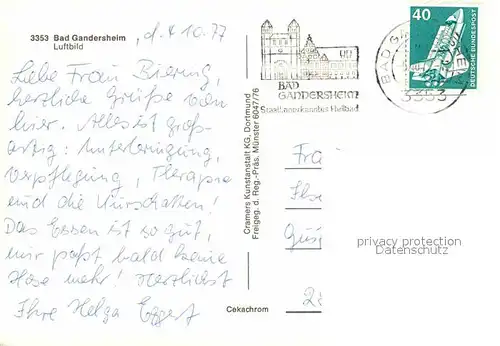 3353 Bad Gandersheim
Luftbild
, d. 4.10.77
Liebe Frau Biering,
herzliche Grüße von
hier. Alles ist groß-
artig: Unterbringung,
Verpflegung, Therapie
und die Kurschatten!
Das Essen ist so gut,
mir paßt bald keine
Hose mehr! Herzlichst
Ihre Helga Eggert
Cramers Kunstanstalt KG, Dortmund
Freigeg. d. Reg.-Präs. Münster 6047/76
Cekachrom
BAD
GANDERSHEIM
Staatl. anerkanntes Heilbad
BAD GA
3353
40
DEUTSCHE BUNDESPOST
Fra
Ilse
privacy protection
Datenschutz